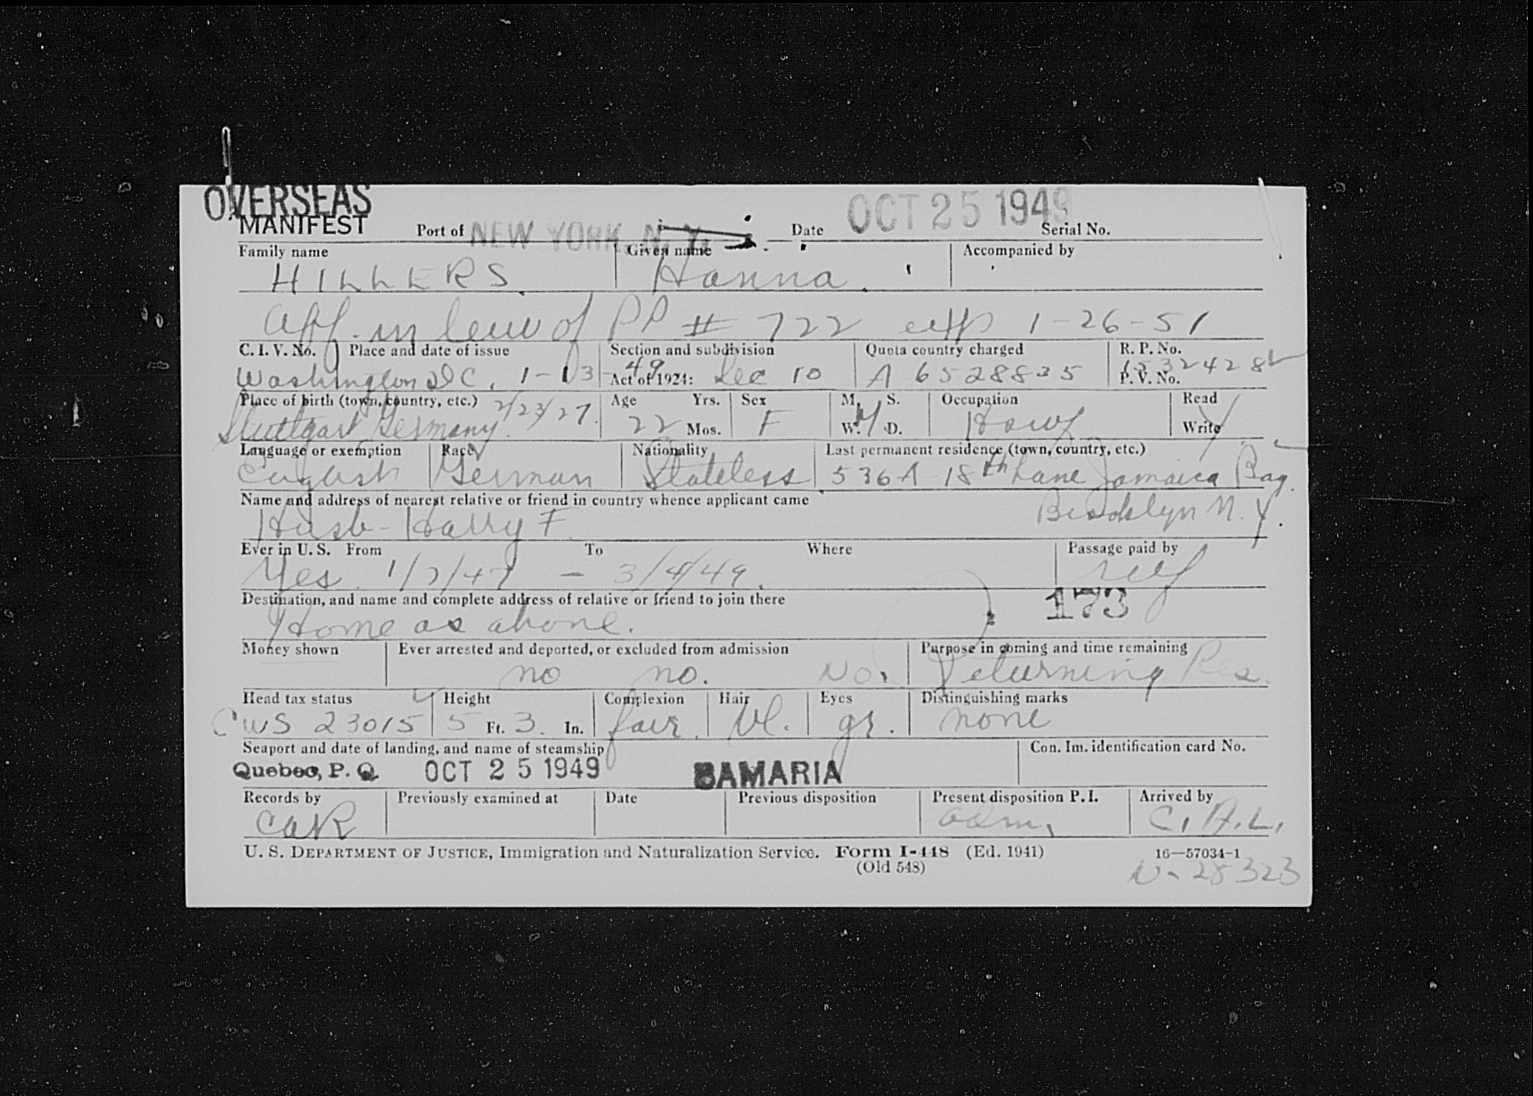 OVERSEAS
MANIFEST Port of NEW YORK, N. Y. Date OCT 25 1949 Serial No.
Family name Given name Accompanied by
HILLERS Hanna
aff. in lew of PP # 722 1-26-51
C. I. V. No. Place and date of issue Section and subdivision Quota country charged R. P. No.
Washington DC, 1-13-49 Act of 1924: Sec 10 A 6528835 P. V. No.
Place of birth (town, country, etc.) 2/23/27 Age Yrs. Sex M. S. Occupation Read
Stuttgart Germany 22 Mos. F W. M D. Hswf Write
Language or exemption Race Nationality Last permanent residence (town, country, etc.)
English German Stateless 536A 18th Lane Jamaica Bay
Name and address of nearest relative or friend in country whence applicant came Brooklyn N. Y.
Husb- Harry F.
Ever in U. S. From To Where Passage paid by
Yes 1/7/47 - 3/4/49. self
Destination, and name and complete address of relative or friend to join there 173
Home as above.
Money shown Ever arrested and deported, or excluded from admission Purpose in coming and time remaining
no no. No. Returning Res.
Head tax status Height Complexion Hair Eyes Distinguishing marks
CWS 23015 5 Ft. 3 In. fair bl. gr. none
Seaport and date of landing, and name of steamship Con. Im. identification card No.
Quebec, P. Q. OCT 25 1949 SAMARIA
Records by Previously examined at Date Previous disposition Present disposition P. I. Arrived by
CaR adm. C. H. L.
U. S. DEPARTMENT OF JUSTICE, Immigration and Naturalization Service. Form I-448 (Ed. 1941) 16—57034-1
(Old 548) N-28323